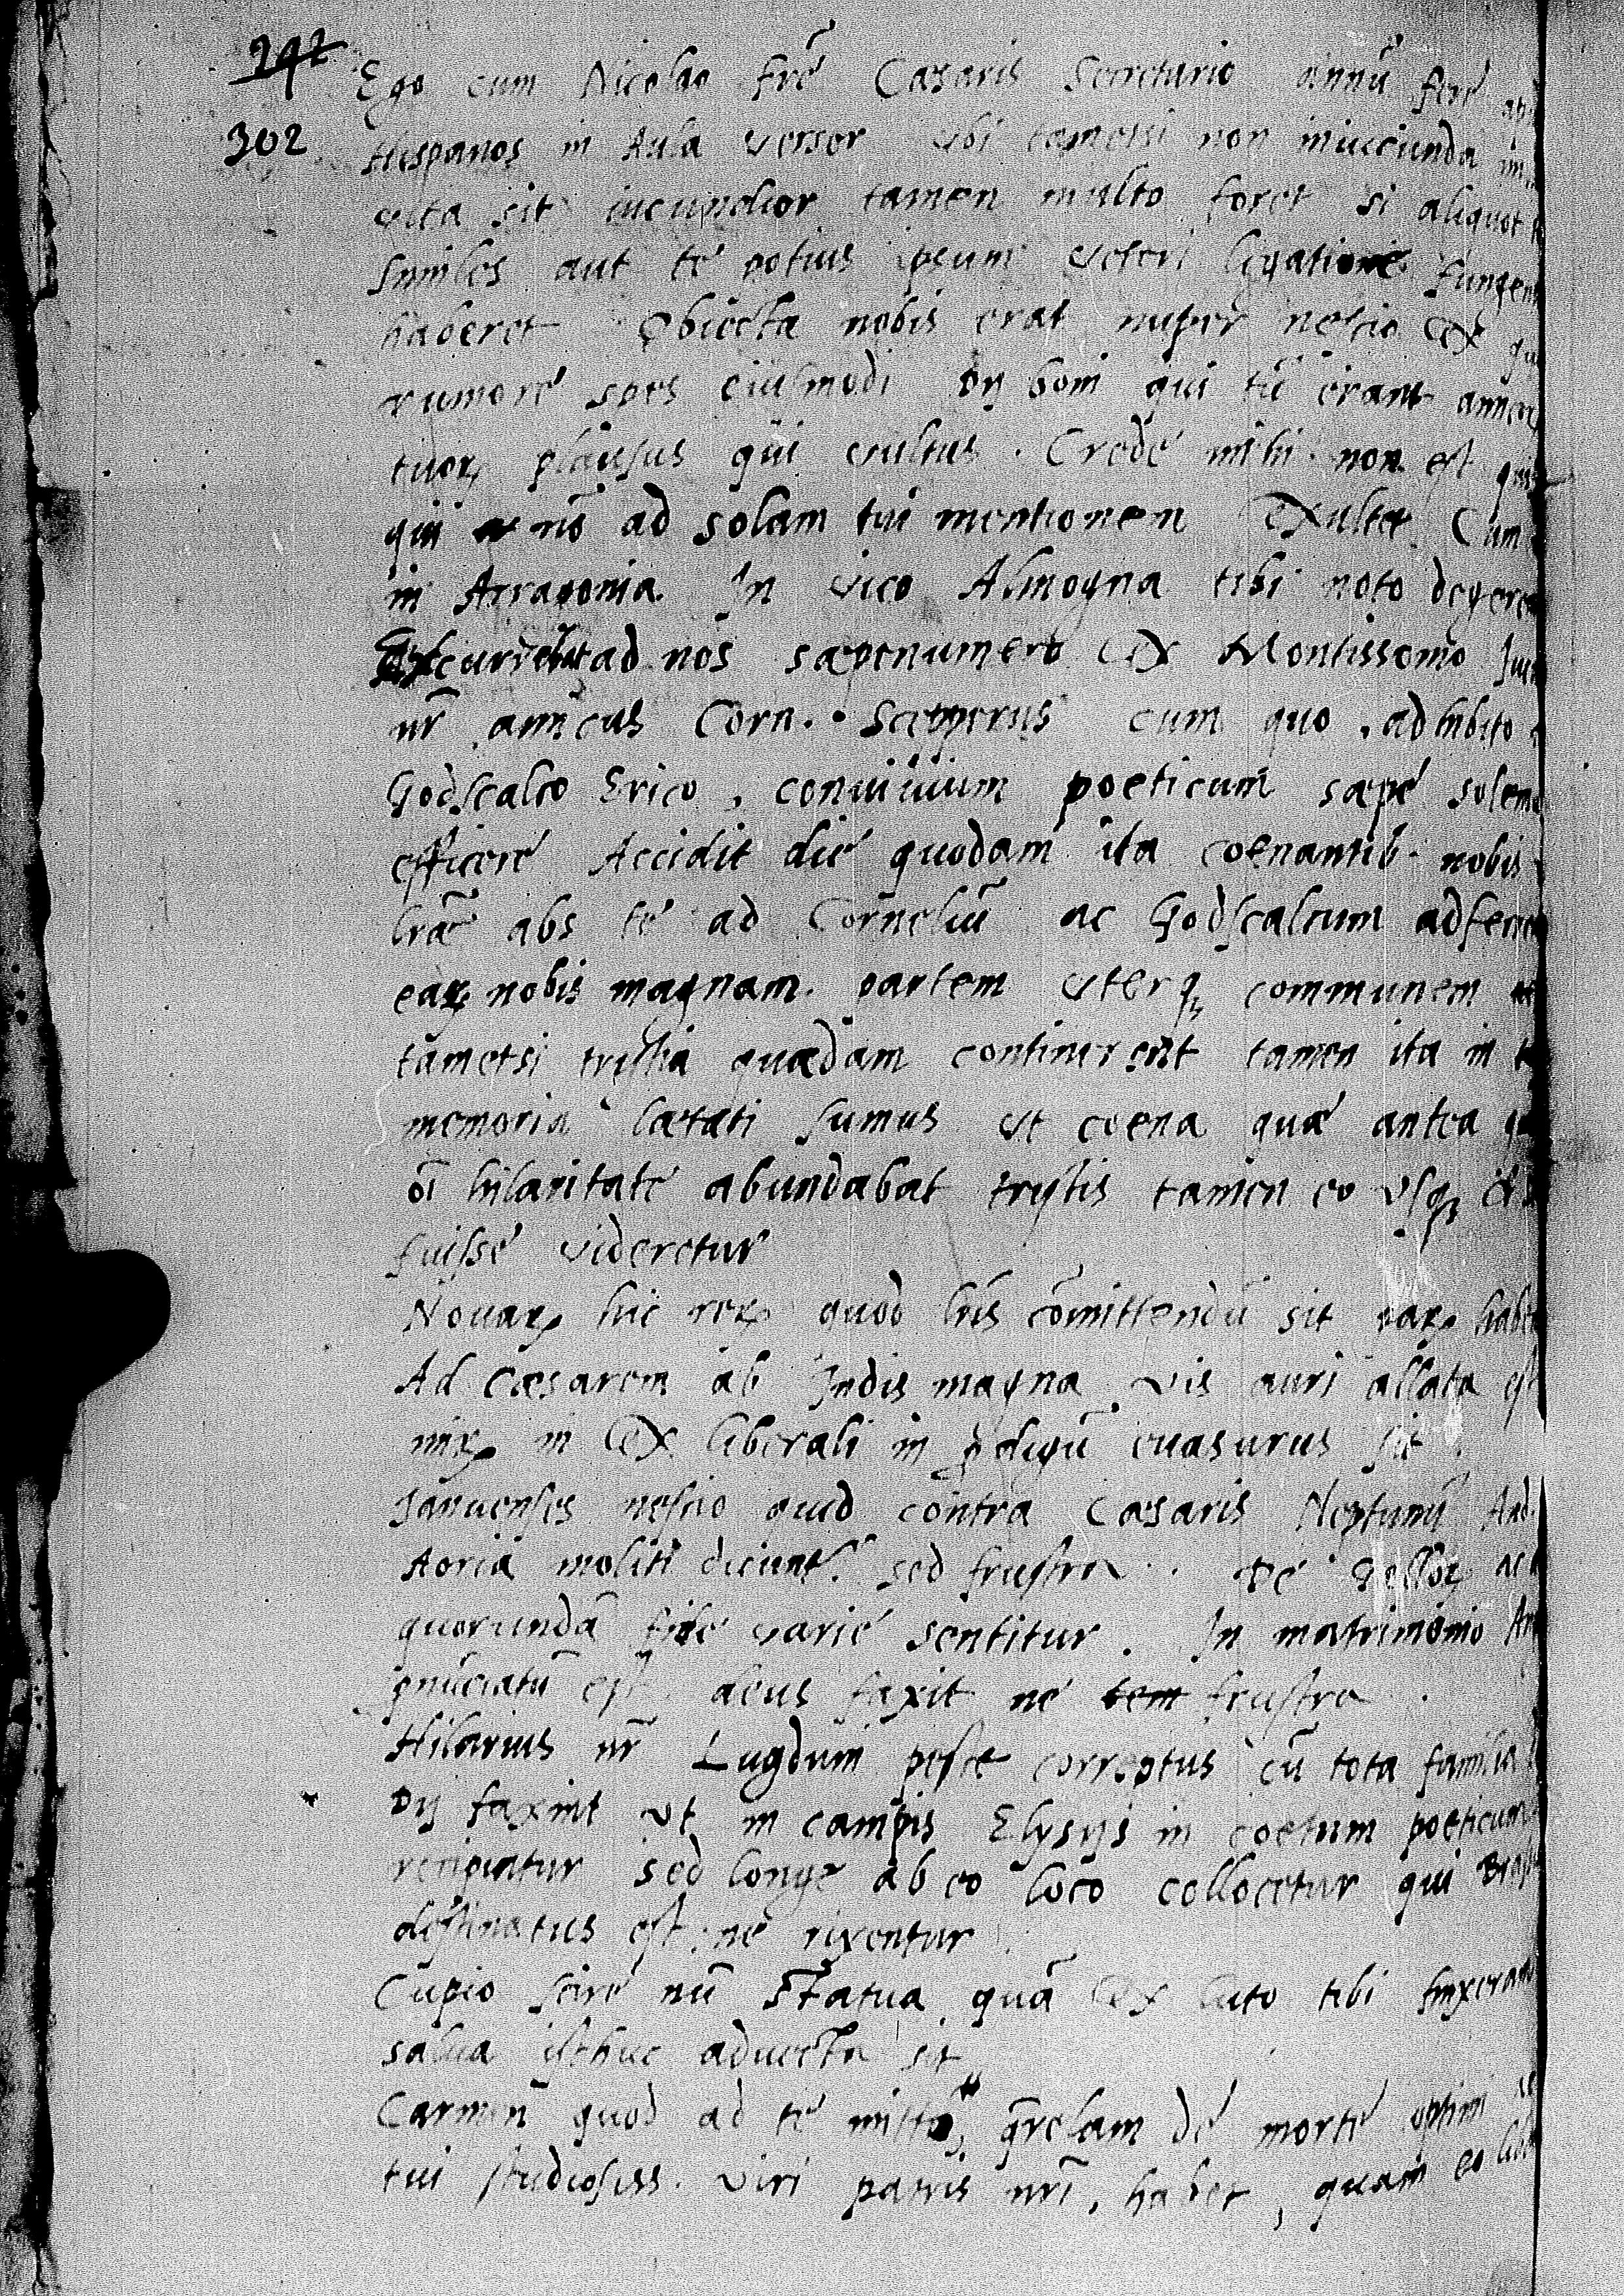 292
302
Ego cum Nicolao fr̃e Caesaris Secretario annũ fere
Hispanos in Aula versor vbi tametsi non iniucunda
vita sit iucundior tamen multo foret si aliquot
similes aut te potius ipsum veteri legatione fungen
haberet Obiecta nobis erat nuper nescio ex
rumore spes eiusmodi Dij boni qui tũ erant
tuoꝝ plausus qui vultus. Crede mihi non est
qui nõ ad solam tui mentionem exultet Cum
in Arragonia In vico Almogna tibi noto degere
ad nos saepenumero ex Montissono
nr̃ amicus Corn. Scepperus cum quo adhibito
Godscalco Erico, conuiuium poeticum saepe solem
efficere Accidit die quodam ita coenantib. nobis
lr̃ae abs te ad Corneliũ ac Godscalcum
eaꝝ nobis magnam partem vterq₃ communem
tametsi tristia quaedam continerent tamen ita in
memoria laetati sumus vt coena quae antea
oĩ hilaritate abundabat tristis tamen eo vsq₃
fuisse videretur
Nouaꝝ hic reꝝ quod lr̃is cõmittendũ sit paꝝ
Ad Caesarem ab Indis magna vis auri allata est
miꝝ ni ex liberali in ꝓdigũ euasurus sit
Januenses nescio quid contra Caesaris Neptunũ And.
Aoria moliti dicunt̃. sed frustra. De
quorundã fide varie sentitur. In matrimonio
ꝓnũciatũ est deus faxit ne frustra.
Hilarius nr̃ Lugduni peste correptus cũ tota familia
Dij faxint vt in campis Elysijs in coetum poeticum
recipiatur sed longe ab eo loco collocetur qui
destinatus est, ne rixentur
Cupio scire nũ Statua quã ex luto tibi finxeram
salua isthuc aduecta sit
Carmen quod ad te mitto, q̃relam de morte optimi
tui studiosiss. viri patris nr̃i, habet, quam eo